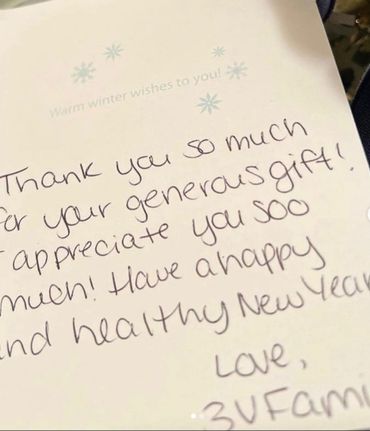 Warm winter wishes to you!
Thank you so much
for your generous gift!
I appreciate you soo
much! Have a happy
and healthy New Year
Love,
3V Fami